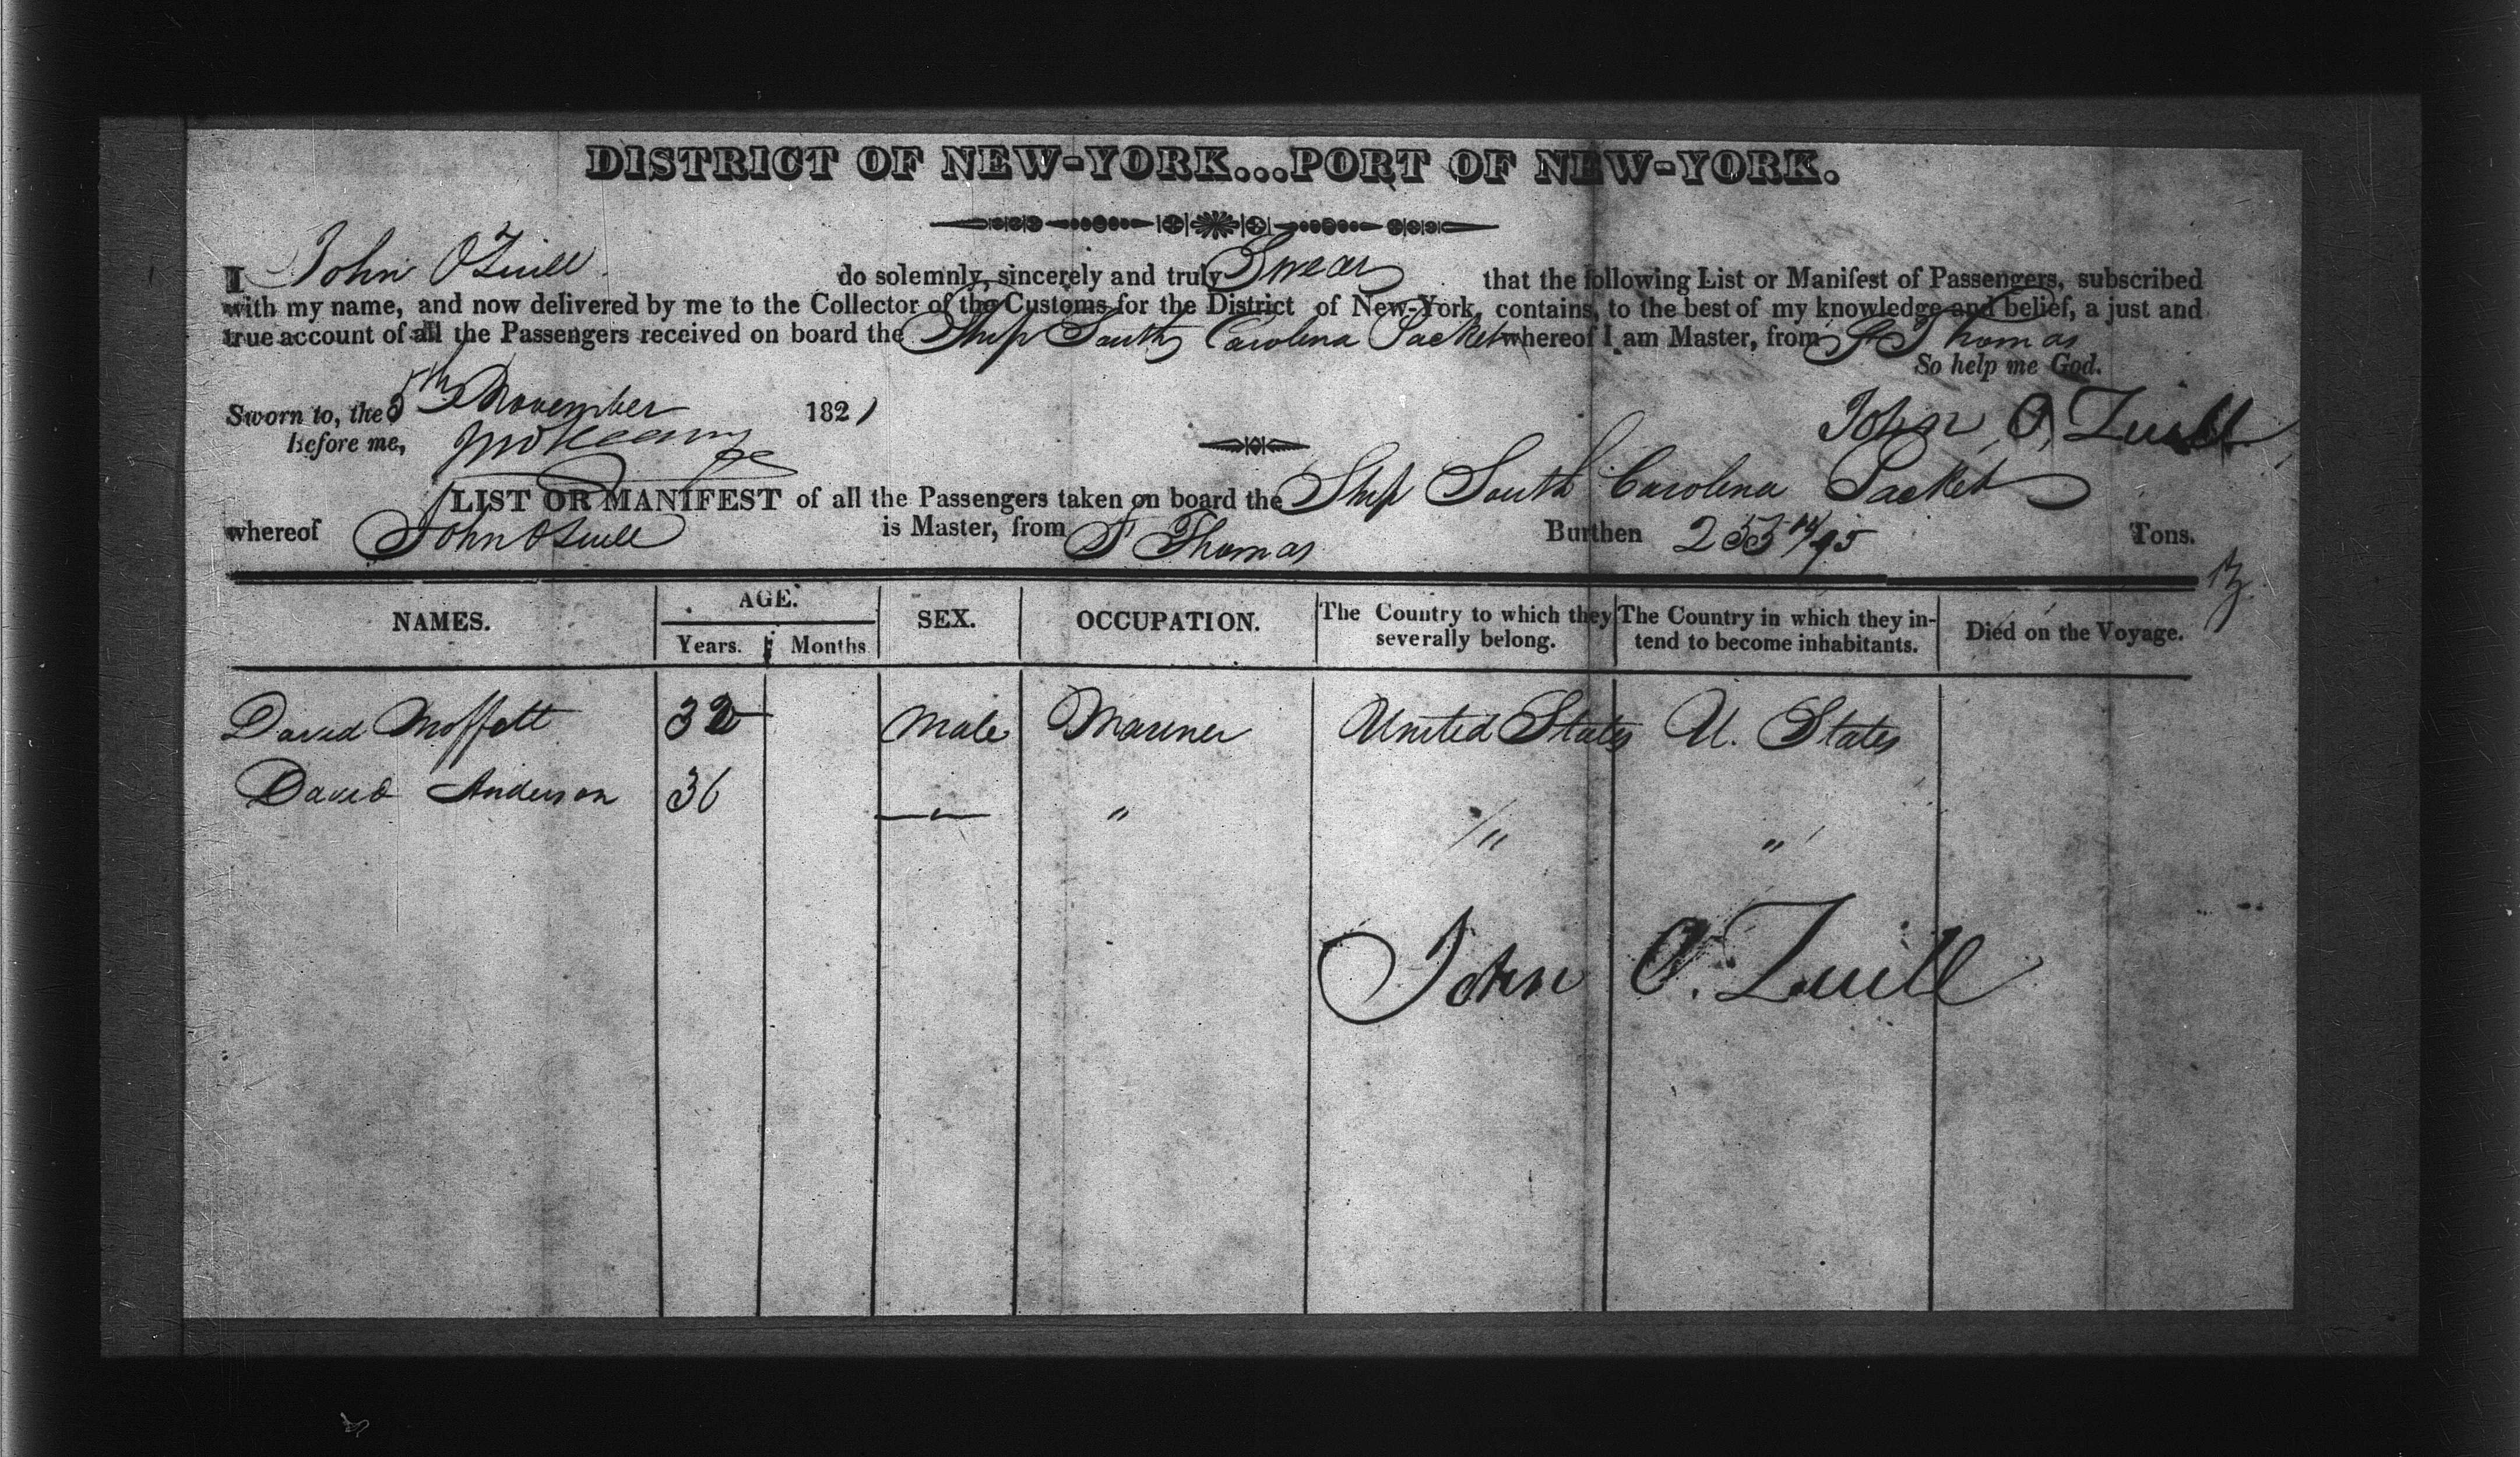 DISTRICT OF NEW-YORK...PORT OF NEW-YORK.
I John O Zuill do solemnly, sincerely and truly Swear that the following List or Manifest of Passengers, subscribed
with my name, and now delivered by me to the Collector of the Customs for the District of New-York, contains, to the best of my knowledge and belief, a just and
true account of all the Passengers received on board the Ship South Carolina Packet whereof I am Master, from St Thomas
So help me God.
Sworn to, the 5th November 1821
John O. Zuill
Before me,
LIST OR MANIFEST of all the Passengers taken on board the Ship South Carolina Packet
whereof John O Zuill is Master, from St Thomas Burthen 255 14/95 Tons.
NAMES. AGE. Years. Months SEX. OCCUPATION. The Country to which they severally belong. The Country in which they intend to become inhabitants. Died on the Voyage.
David Moffett 32 Male Mariner United States U. States
David Anderson 36 — " — " " "
John O. Zuill